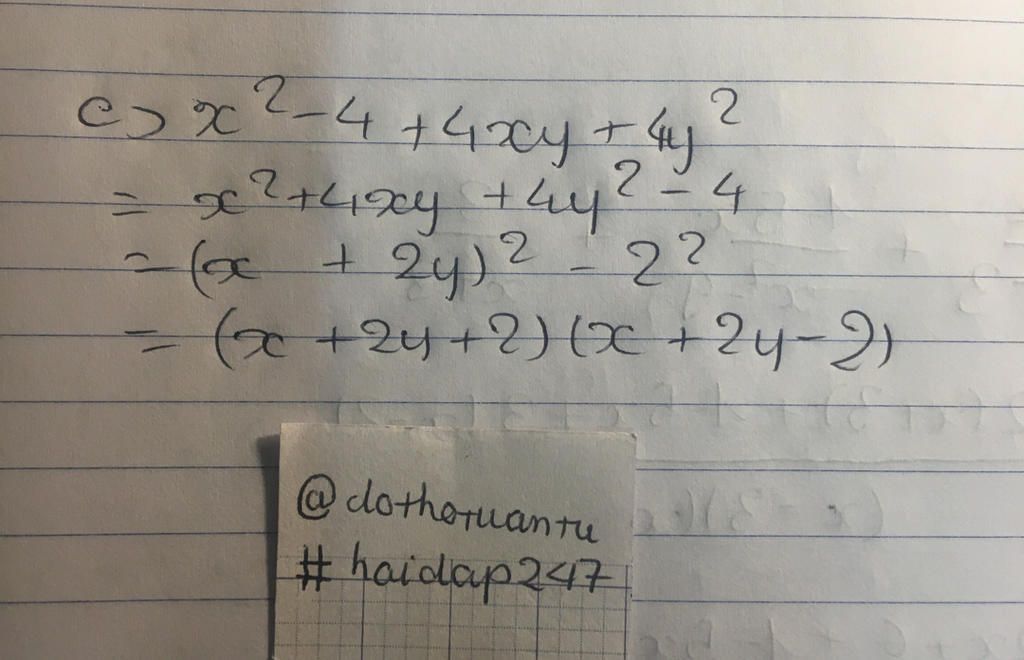 c> x² - 4 + 4xy + 4y²
= x² + 4xy + 4y² - 4
= (x + 2y)² - 2²
= (x + 2y + 2) (x + 2y - 2)
@dothotuantu
# haidap247